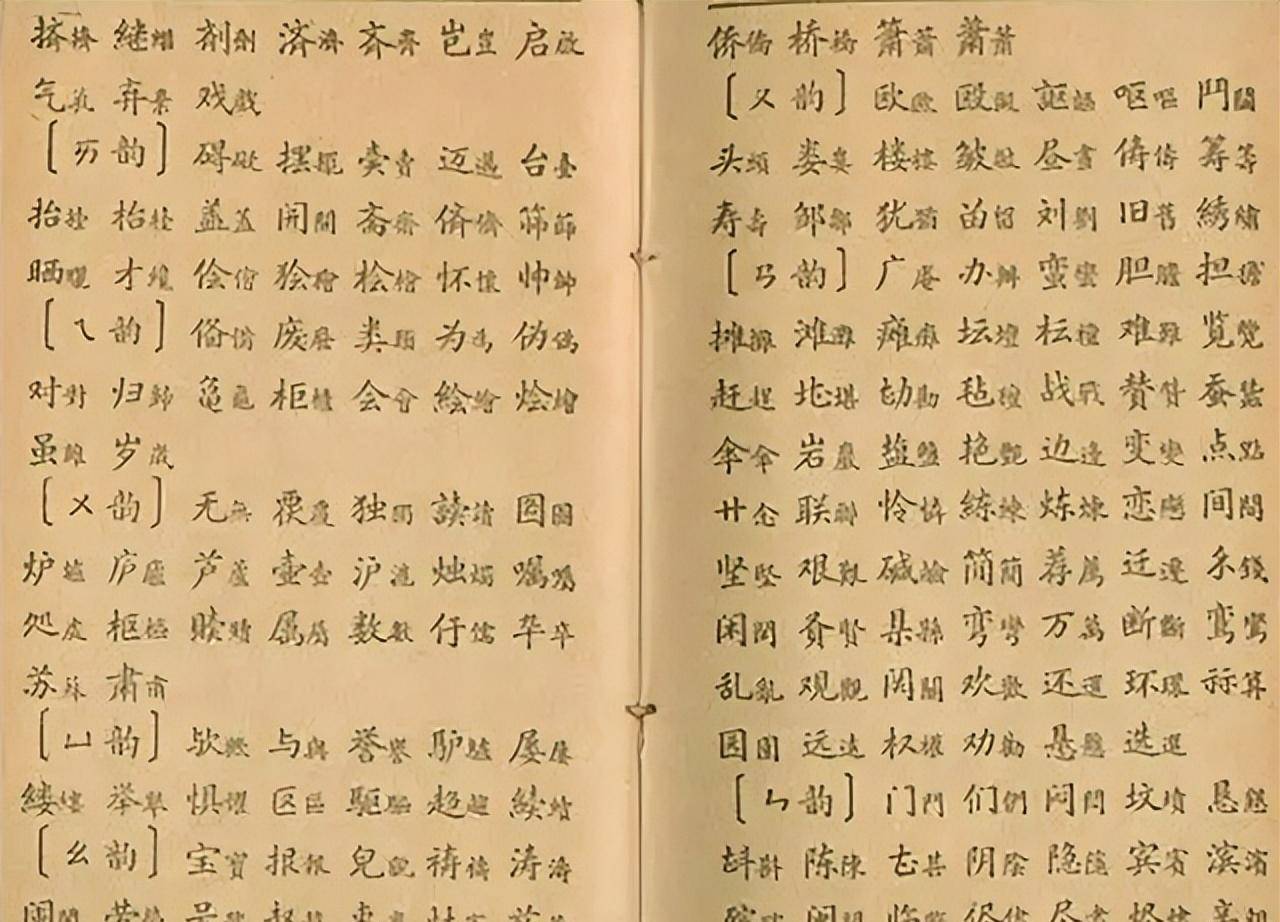 挤擠 继繼 剂劑 济濟 斉齊 岂豈 启啟
气氣 弃棄 戏戲
[ㄞ韵] 碍礙 摆擺 卖賣 迈邁 台臺
抬擡 枱檯 盖蓋 开開 斋齋 侪儕 筛篩
晒曬 才纔 侩儈 狯獪 桧檜 怀懷 帅帥
[ㄟ韵] 俻備 废廢 类類 为爲 伪僞
对對 归歸 亀龜 柜櫃 会會 絵繪 烩燴
虽雖 岁歲
[ㄨ韵] 无無 覆 独獨 読讀 图圖
炉爐 庐廬 芦蘆 壶壺 沪滬 烛燭 嘱囑
处處 枢樞 赎贖 属屬 数數 仔儒 卒
苏蘇 肃肅
[ㄩ韵] 欤歟 与與 誉譽 驴驢 屡屢
缕縷 举舉 惧懼 区區 驱驅 趋趨 续續
[ㄠ韵] 宝寶 报報 皃貌 祷禱 涛濤
侨僑 桥橋 箫簫 萧蕭
[ㄡ韵] 欧歐 殴毆 讴謳 呕嘔 鬥鬭
头頭 娄婁 楼樓 皱皺 昼晝 俦儔 筹籌
寿壽 邹鄒 犹猶 畄留 刘劉 旧舊 绣繡
[ㄢ韵] 广庵 办辦 蛮蠻 胆膽 担擔
摊攤 滩灘 瘫癱 坛壇 枟檀 难難 览覽
赶趕 堪 勘 毡氈 战戰 赞贊 蚕蠶
伞傘 岩巖 盐鹽 艳艷 边邊 变變 点點
廿念 联聯 怜憐 练練 炼煉 恋戀 间間
坚堅 艰艱 碱鹼 简簡 荐薦 迁遷 錢
闲閑 贤賢 县縣 弯彎 万萬 断斷 鸾鸞
乱亂 观觀 関關 欢歡 还還 环環 祘算
园園 远遠 权權 劝勸 悬懸 选選
[ㄣ韵] 门門 们們 闷悶 坟墳 恳懇
斟 陈陳 甚 阴陰 隐隱 宾賓 滨濱